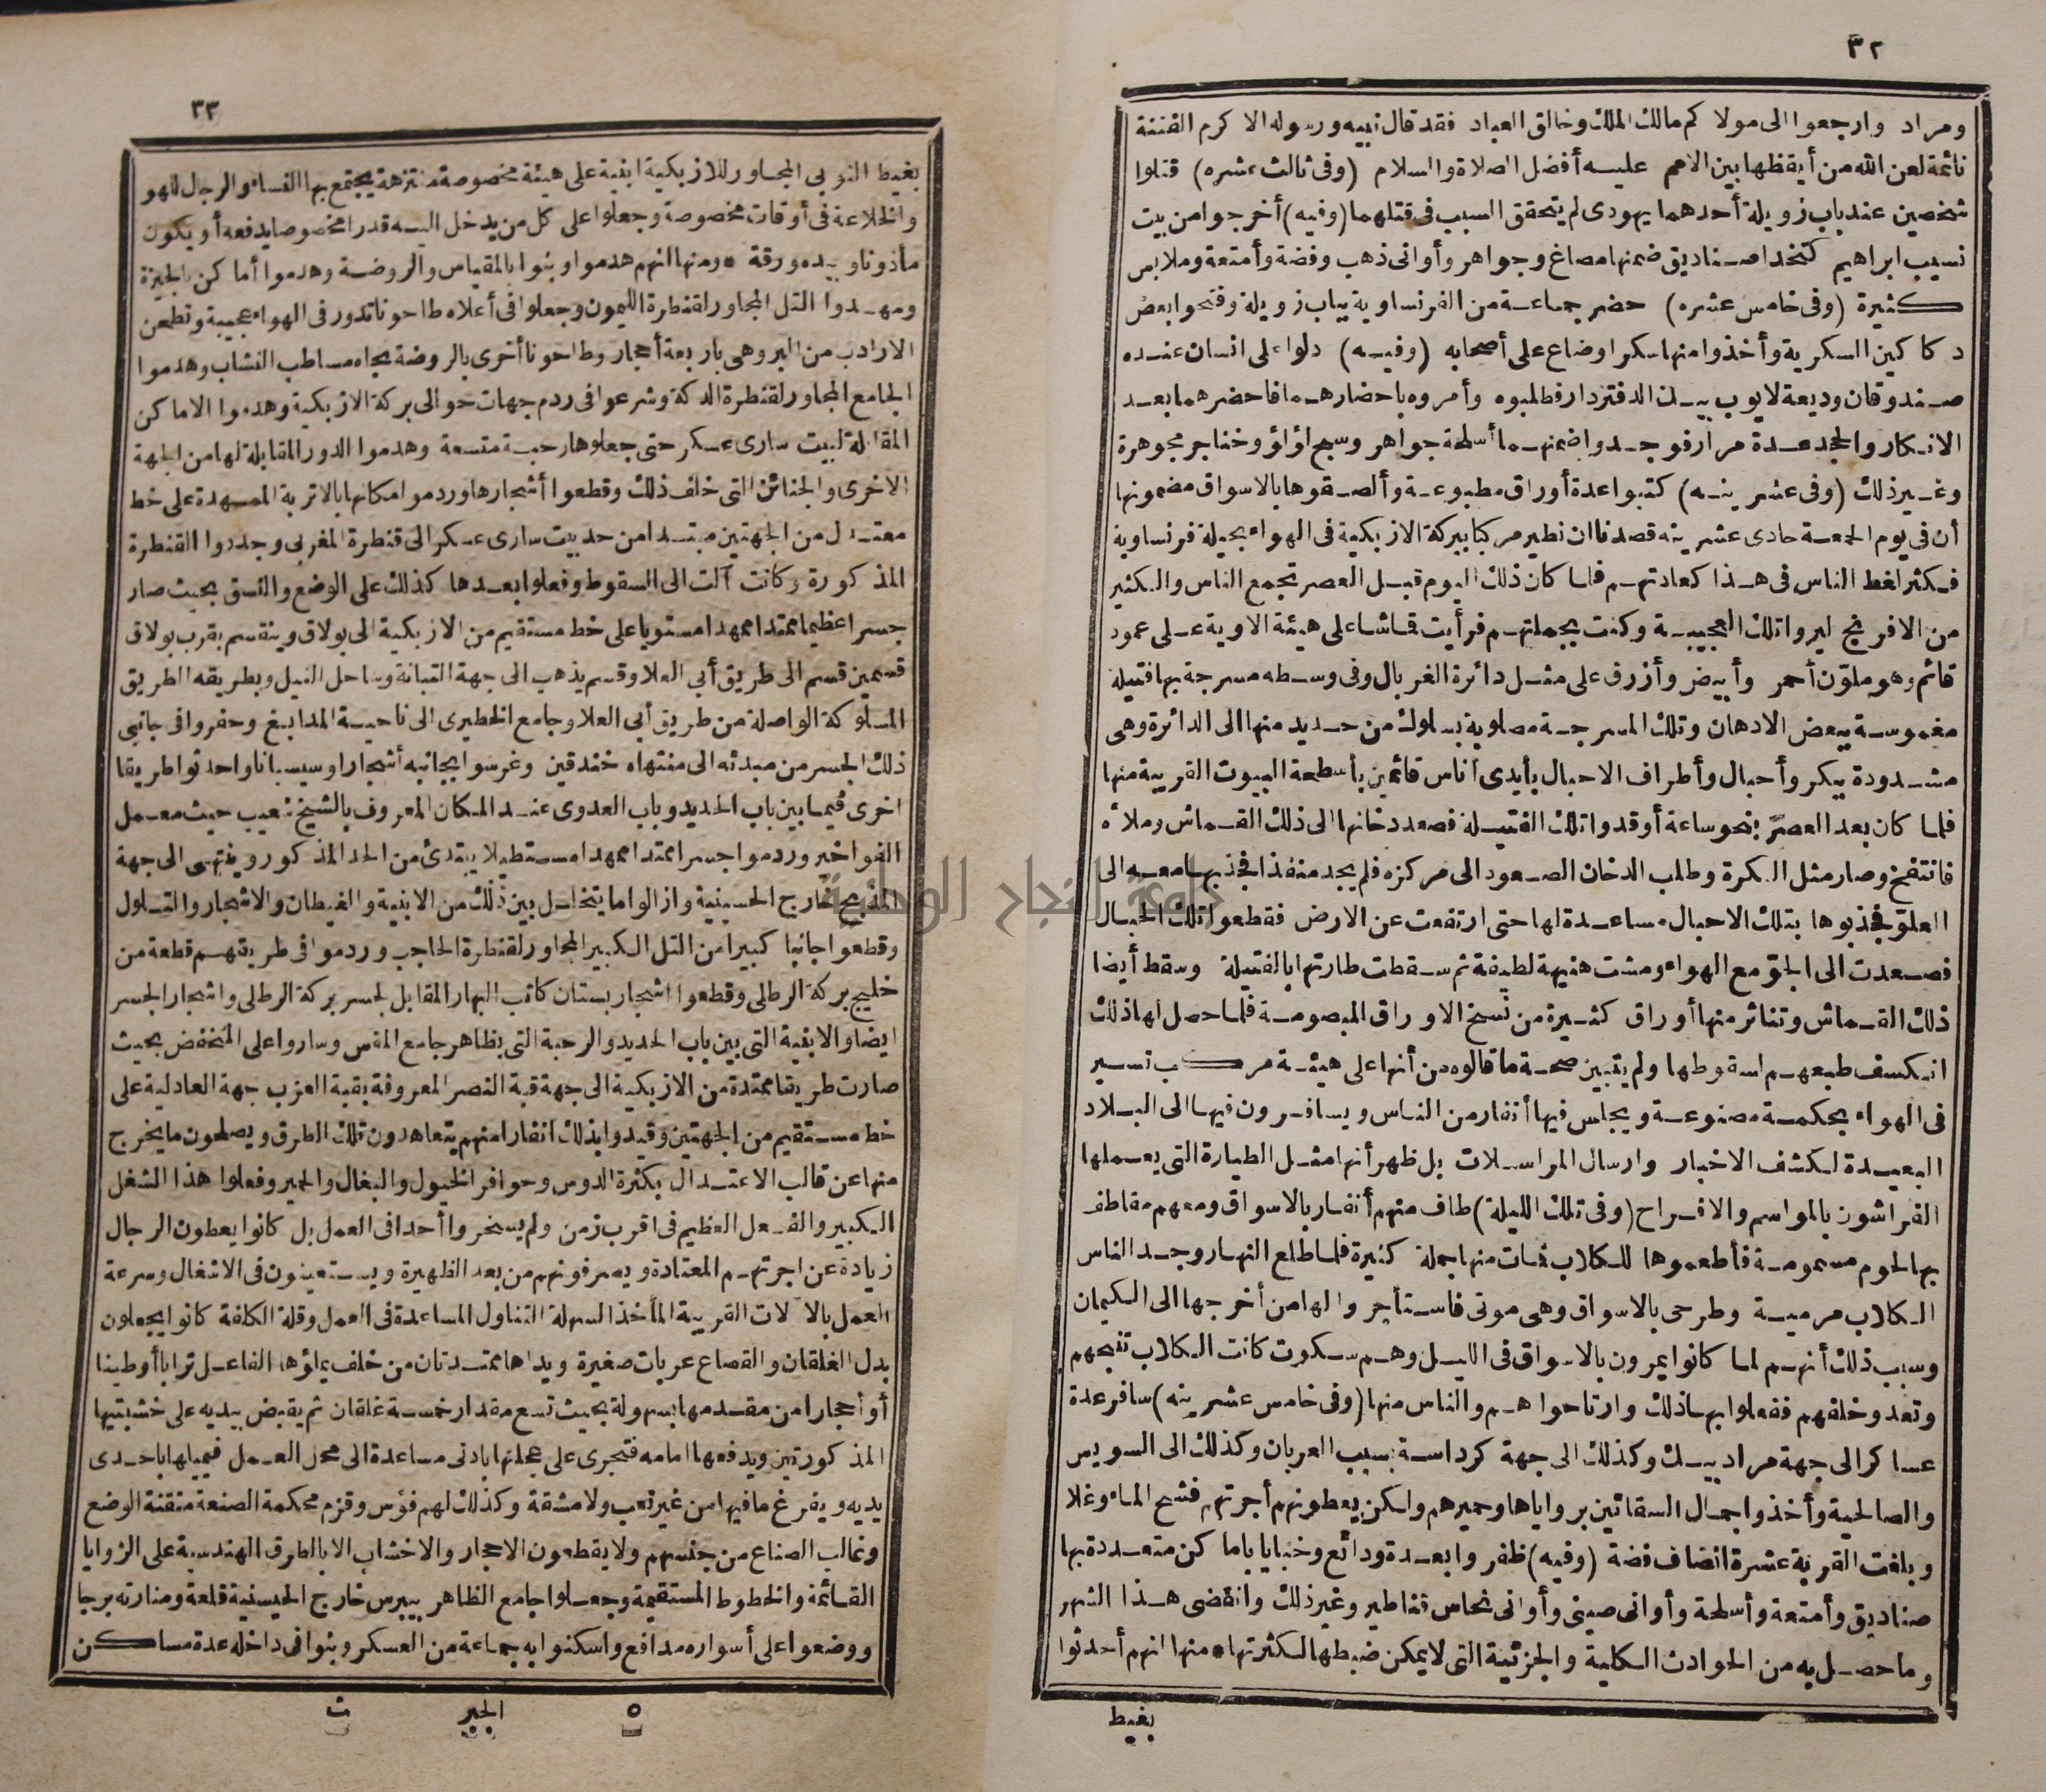 ٣٢
ومراد وارجعوا الى مولاكم مالك الملك وخالق العباد فقد قال نبيه ورسوله الاكرم الفتنة
نائمة لعن الله من أيقظها بين الامم عليه أفضل الصلاة والسلام (وفى ثالث عشره) قتلوا
شخصين عند باب زويلة أحدهما يهودى لم يتحقق السبب فى قتلهما (وفيه) أخرجوا من بيت
نسيب ابراهيم كتخدا صناديق ضمنها مصاغ وجواهر وأوانى ذهب وفضة وأمتعة وملابس
كثيرة (وفى خامس عشره) حضر جماعة من الفرنساوية بباب زويلة وفتحوا بعض
دكاكين السكرية وأخذوا منها سكرا وضاع على أصحابه (وفيه) دلوا على انسان عنده
صندوقان وديعة لايوب بيك الدفتردار فطلبوه وأمروه باحضارهما فاحضرهما بعد
الانكار والجحد عدة مرار فوجدوا ضمنهما أسلحة جواهر وسبح لؤلؤ وخناجر مجوهرة
وغير ذلك (وفى عشرينه) كتبوا عدة أوراق مطبوعة وألصقوها بالاسواق مضمونها
أن فى يوم الجمعة حادى عشرينه قصدنا ان نطير مركبا ببركة الازبكية فى الهواء بحيلة فرنساوية
فكثر لغط الناس فى هذا كعادتهم فلما كان ذلك اليوم قبل العصر تجمع الناس والكثير
من الافرنج ليروا تلك العجيبة وكنت بجملتهم فرأيت قماشا على هيئة الاوية على عمود
قائم وهو ملوّن أحمر وأبيض وأزرق على مثل دائرة الغربال وفى وسطه مسرجة بها فتيلة
مغموسة ببعض الادهان وتلك المسرجة مصلوبة بسلوك من حديد منها الى الدائرة وهى
مشدودة ببكر وأحبال وأطراف الاحبال بأيدى أناس قائمين بأسطحة البيوت القريبة منها
فلما كان بعد العصر بنحو ساعة أوقدوا تلك الفتيلة فصعد دخانها الى ذلك القماش وملأه
فانتفخ وصار مثل الكرة وطلب الدخان الصعود الى مركزه فلم يجد منفذا فجذبها معه الى
العلوّ فجذبوها بتلك الاحبال مساعدة لها حتى ارتفعت عن الارض فقطعوا تلك الحبال
فصعدت الى الجوّ مع الهواء ومشت هنيهة لطيفة ثم سقطت طارتها بالفتيلة وسقط أيضا
ذلك القماش وتناثر منها أوراق كثيرة من نسخ الاوراق المبصومة فلما حصل لها ذلك
انكسف طبعهم لسقوطها ولم يتبين صحة ما قالوه من أنها على هيئة مركب تسير
فى الهواء بحكمة مصنوعة ويجلس فيها أنفار من الناس ويسافرون فيها الى البلاد
البعيدة لكشف الاخبار وارسال المراسلات بل ظهر أنها مثل الطيارة التى يعملها
الفراشون بالمواسم والافراح (وفى تلك الليلة) طاف منهم أنفار بالاسواق ومعهم مقاطف
بها لحوم مسمومة فأطعموها للكلاب فمات منها جملة كثيرة فلما طلع النهار وجد الناس
الكلاب مرمية وطرحى بالاسواق وهى موتى فاستأجروا لها من أخرجها الى الكيمان
وسبب ذلك أنهم لما كانوا يمرون بالاسواق فى الليل وهم سكوت كانت الكلاب تنبحهم
وتعدو خلفهم ففعلوا بها ذلك وارتاحوا هم والناس منها (وفى خامس عشرينه) سافر عدة
عساكر الى جهة مراد بيك وكذلك الى جهة كرداسة بسبب العربان وكذلك الى السويس
والصالحية وأخذوا جمال السقائين برواياها وحميرهم ولكن يعطونهم أجرتهم فشح الماء وغلا
وبلغت القربة عشرة انصاف فضة (وفيه) ظفروا بعدة ودائع وخبايا باماكن متعددة بها
صناديق وأمتعة وأسلحة وأوانى صينى وأوانى نحاس قناطير وغير ذلك وانقضى هذا الشهر
وما حصل به من الحوادث الكلية والجزئية التى لا يمكن ضبطها لكثرتها * منها انهم أحدثوا
بغيط
٣٣
بغيط النوبى المجاور للازبكية ابنية على هيئة مخصوصة منتزهة يجتمع بها النساء والرجال للهو
والخلاعة فى أوقات مخصوصة وجعلوا على كل من يدخل اليه قدرا مخصوصا يدفعه أو يكون
مأذونا وبيده ورقة * ومنها انهم هدموا وبنوا بالمقياس والروضة وهدموا أماكن بالجيزة
ومهدوا التل المجاور لقنطرة الليمون وجعلوا فى أعلاه طاحونا تدور فى الهواء عجيبة وتطحن
الارادب من البر وهى باربعة أحجار وطاحونا أخرى بالروضة تجاه مساطب النشاب وهدموا
الجامع المجاور لقنطرة الدكة وشرعوا فى ردم جهات حوالى بركة الازبكية وهدموا الاماكن
المقابلة لبيت سارى عسكر حتى جعلوها رحبة متسعة وهدموا الدور المقابلة لها من الجهة
الاخرى والجنائن التى خلف ذلك وقطعوا أشجارها وردموا مكانها بالاتربة الممهدة على خط
معتدل من الجهتين مبتدا من حد بيت سارى عسكر الى قنطرة المغربى وجددوا القنطرة
المذكورة وكانت آلت الى السقوط وفعلوا بعدها كذلك على الوضع والنسق بحيث صار
جسرا عظيما ممتدا ممهدا مستويا على خط مستقيم من الازبكية الى بولاق وينقسم بقرب بولاق
قسمين قسم الى طريق أبى العلا وقسم يذهب الى جهة التبانة وساحل النيل وبطريقه الطريق
المسلوكة الواصلة من طريق أبى العلا وجامع الخطيرى الى ناحية المدابغ وحفروا فى جانبى
ذلك الجسر من مبدئه الى منتهاه خندقين وغرسوا بجانبه أشجارا وسيسبانا واحدثوا طريقا
اخرى فيما بين باب الحديد وباب العدوى عند المكان المعروف بالشيخ شعيب حيث معمل
الفواخير وردموا جسرا ممتدا ممهدا مستطيلا يبتدئ من الحد المذكور وينتهى الى جهة
المذبح خارج الحسينية وازالوا ما يتخلل بين ذلك من الابنية والغيطان والاشجار والتلول
وقطعوا جانبا كبيرا من التل الكبير المجاور لقنطرة الحاجب وردموا فى طريقهم قطعة من
خليج بركة الرطلى وقطعوا اشجار بستان كاتب البهار المقابل لجسر بركة الرطلى واشجار الجسر
ايضا والابنية التى بين باب الحديد والرحبة التى بظاهر جامع المقس وساروا على المنخفض بحيث
صارت طريقا ممتدة من الازبكية الى جهة قبة النصر المعروفة بقبة العزب جهة العادلية على
خط مستقيم من الجهتين وقيدوا بذلك انفارا منهم يتعاهدون تلك الطرق ويصلحون ما يخرج
منها عن قالب الاعتدال بكثرة الدوس وحوافر الخيول والبغال والحمير وفعلوا هذا الشغل
الكبير والفعل العظيم فى اقرب زمن ولم يسخروا أحدا فى العمل بل كانوا يعطون الرجال
زيادة عن اجرتهم المعتادة ويصرفونهم من بعد الظهيرة ويستعينون فى الاشغال وسرعة
العمل بالآلات القريبة المأخذ السهلة التناول المساعدة فى العمل وقلة الكلفة كانوا يجعلون
بدل الغلقان والقصاع عربات صغيرة ويداها ممتدتان من خلف يملؤها الفاعل ترابا أو طينا
أو أحجارا من مقدمها بسهولة بحيث تسع مقدار خمسة غلقان ثم يقبض بيديه على خشبتيها
المذكورتين ويدفعها امامه فتجرى على عجلتها بادنى مساعدة الى محل العمل فيميلها باحدى
يديه ويفرغ ما فيها من غير تعب ولا مشقة وكذلك لهم فؤس وقزم محكمة الصنعة متقنة الوضع
وغالب الصناع من جنسهم ولا يقطعون الاحجار والاخشاب الا بالطرق الهندسية على الزوايا
القائمة والخطوط المستقيمة وجعلوا جامع الظاهر بيبرس خارج الحسينية قلعة ومنارته برجا
ووضعوا على أسواره مدافع واسكنوا به جماعة من العسكر وبنوا فى داخله عدة مساكن
٥ الجبر ث
جامعة النجاح الوطنية